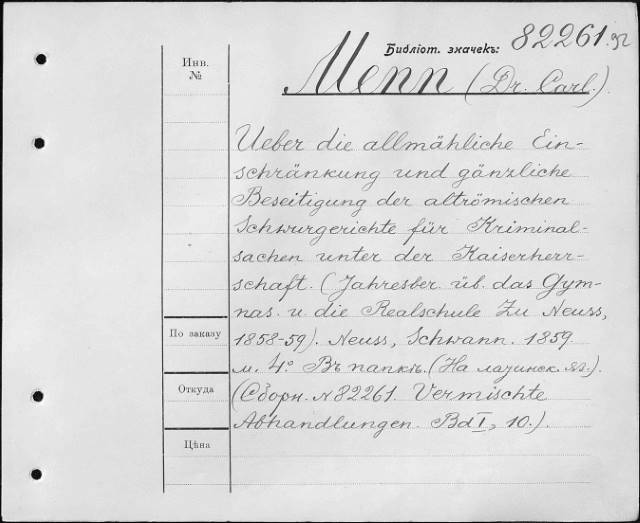 Библіот. значекъ: 82261.
Инв.
№
Menn (Dr. Carl.).
Ueber die allmähliche Ein-
schränkung und gänzliche
Beseitigung der altrömischen
Schwurgerichte für Kriminal-
sachen unter der Kaiserherr-
schaft. (Jahresber. üb. das Gym-
nas. u. die Realschule zu Neuss,
По заказу
1858-59). Neuss, Schwann. 1859
м. 4º Въ папкѣ. (На латинск. яз.).
Откуда
(Сборн. № 82261. Vermischte
Abhandlungen. Bd I, 10.).
Цѣна